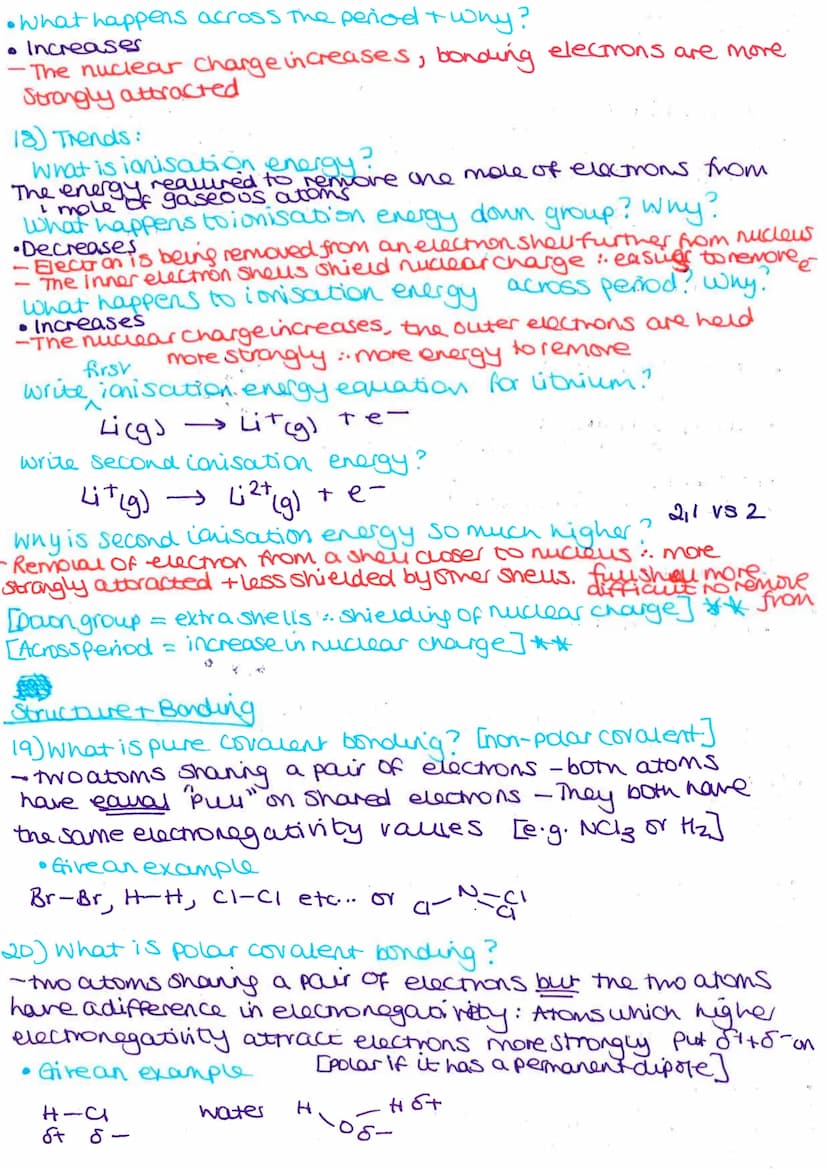 • What happens across the period + why?
• Increases
– The nuclear charge increases, bonding electrons are more
strongly attracted
18) Trends:
What is ionisation energy?
The energy required to remove one mole of electrons from
1 mole of gaseous atoms
What happens to ionisation energy down group? Why?
• Decreases
– Electron is being removed from an electron shell further from nucleus
– The inner electron shells shield nuclear charge ∴ easier to remove e⁻
What happens to ionisation energy across period? Why?
• Increases
– The nuclear charge increases, the outer electrons are held
more strongly ∴ more energy to remove
Write first ionisation energy equation for lithium?
Li(g) → Li⁺(g) + e⁻
Write second ionisation energy?
Li⁺(g) → Li²⁺(g) + e⁻
2,1 vs 2
Why is second ionisation energy so much higher?
- Removal of electron from a shell closer to nucleus ∴ more
strongly attracted + less shielded by other shells. full shell more
difficult to remove from
[Down group = extra shells ∴ shielding of nuclear charge] **
[Across period = increase in nuclear charge] **
Structure + Bonding
19) What is pure covalent bonding? [non-polar covalent]
– two atoms sharing a pair of electrons – both atoms
have equal "pull" on shared electrons – They both have
the same electronegativity values [e.g. NCl₃ or H₂]
• Give an example
Br–Br, H–H, Cl–Cl etc... or Cl–N–Cl
Cl
20) What is polar covalent bonding?
– two atoms sharing a pair of electrons but the two atoms
have a difference in electronegativity: Atoms which higher
electronegativity attract electrons more strongly Put δ⁺ + δ⁻ on
• Give an example [polar if it has a permanent dipole]
H–Cl water H H δ+
δ+ δ– O δ–